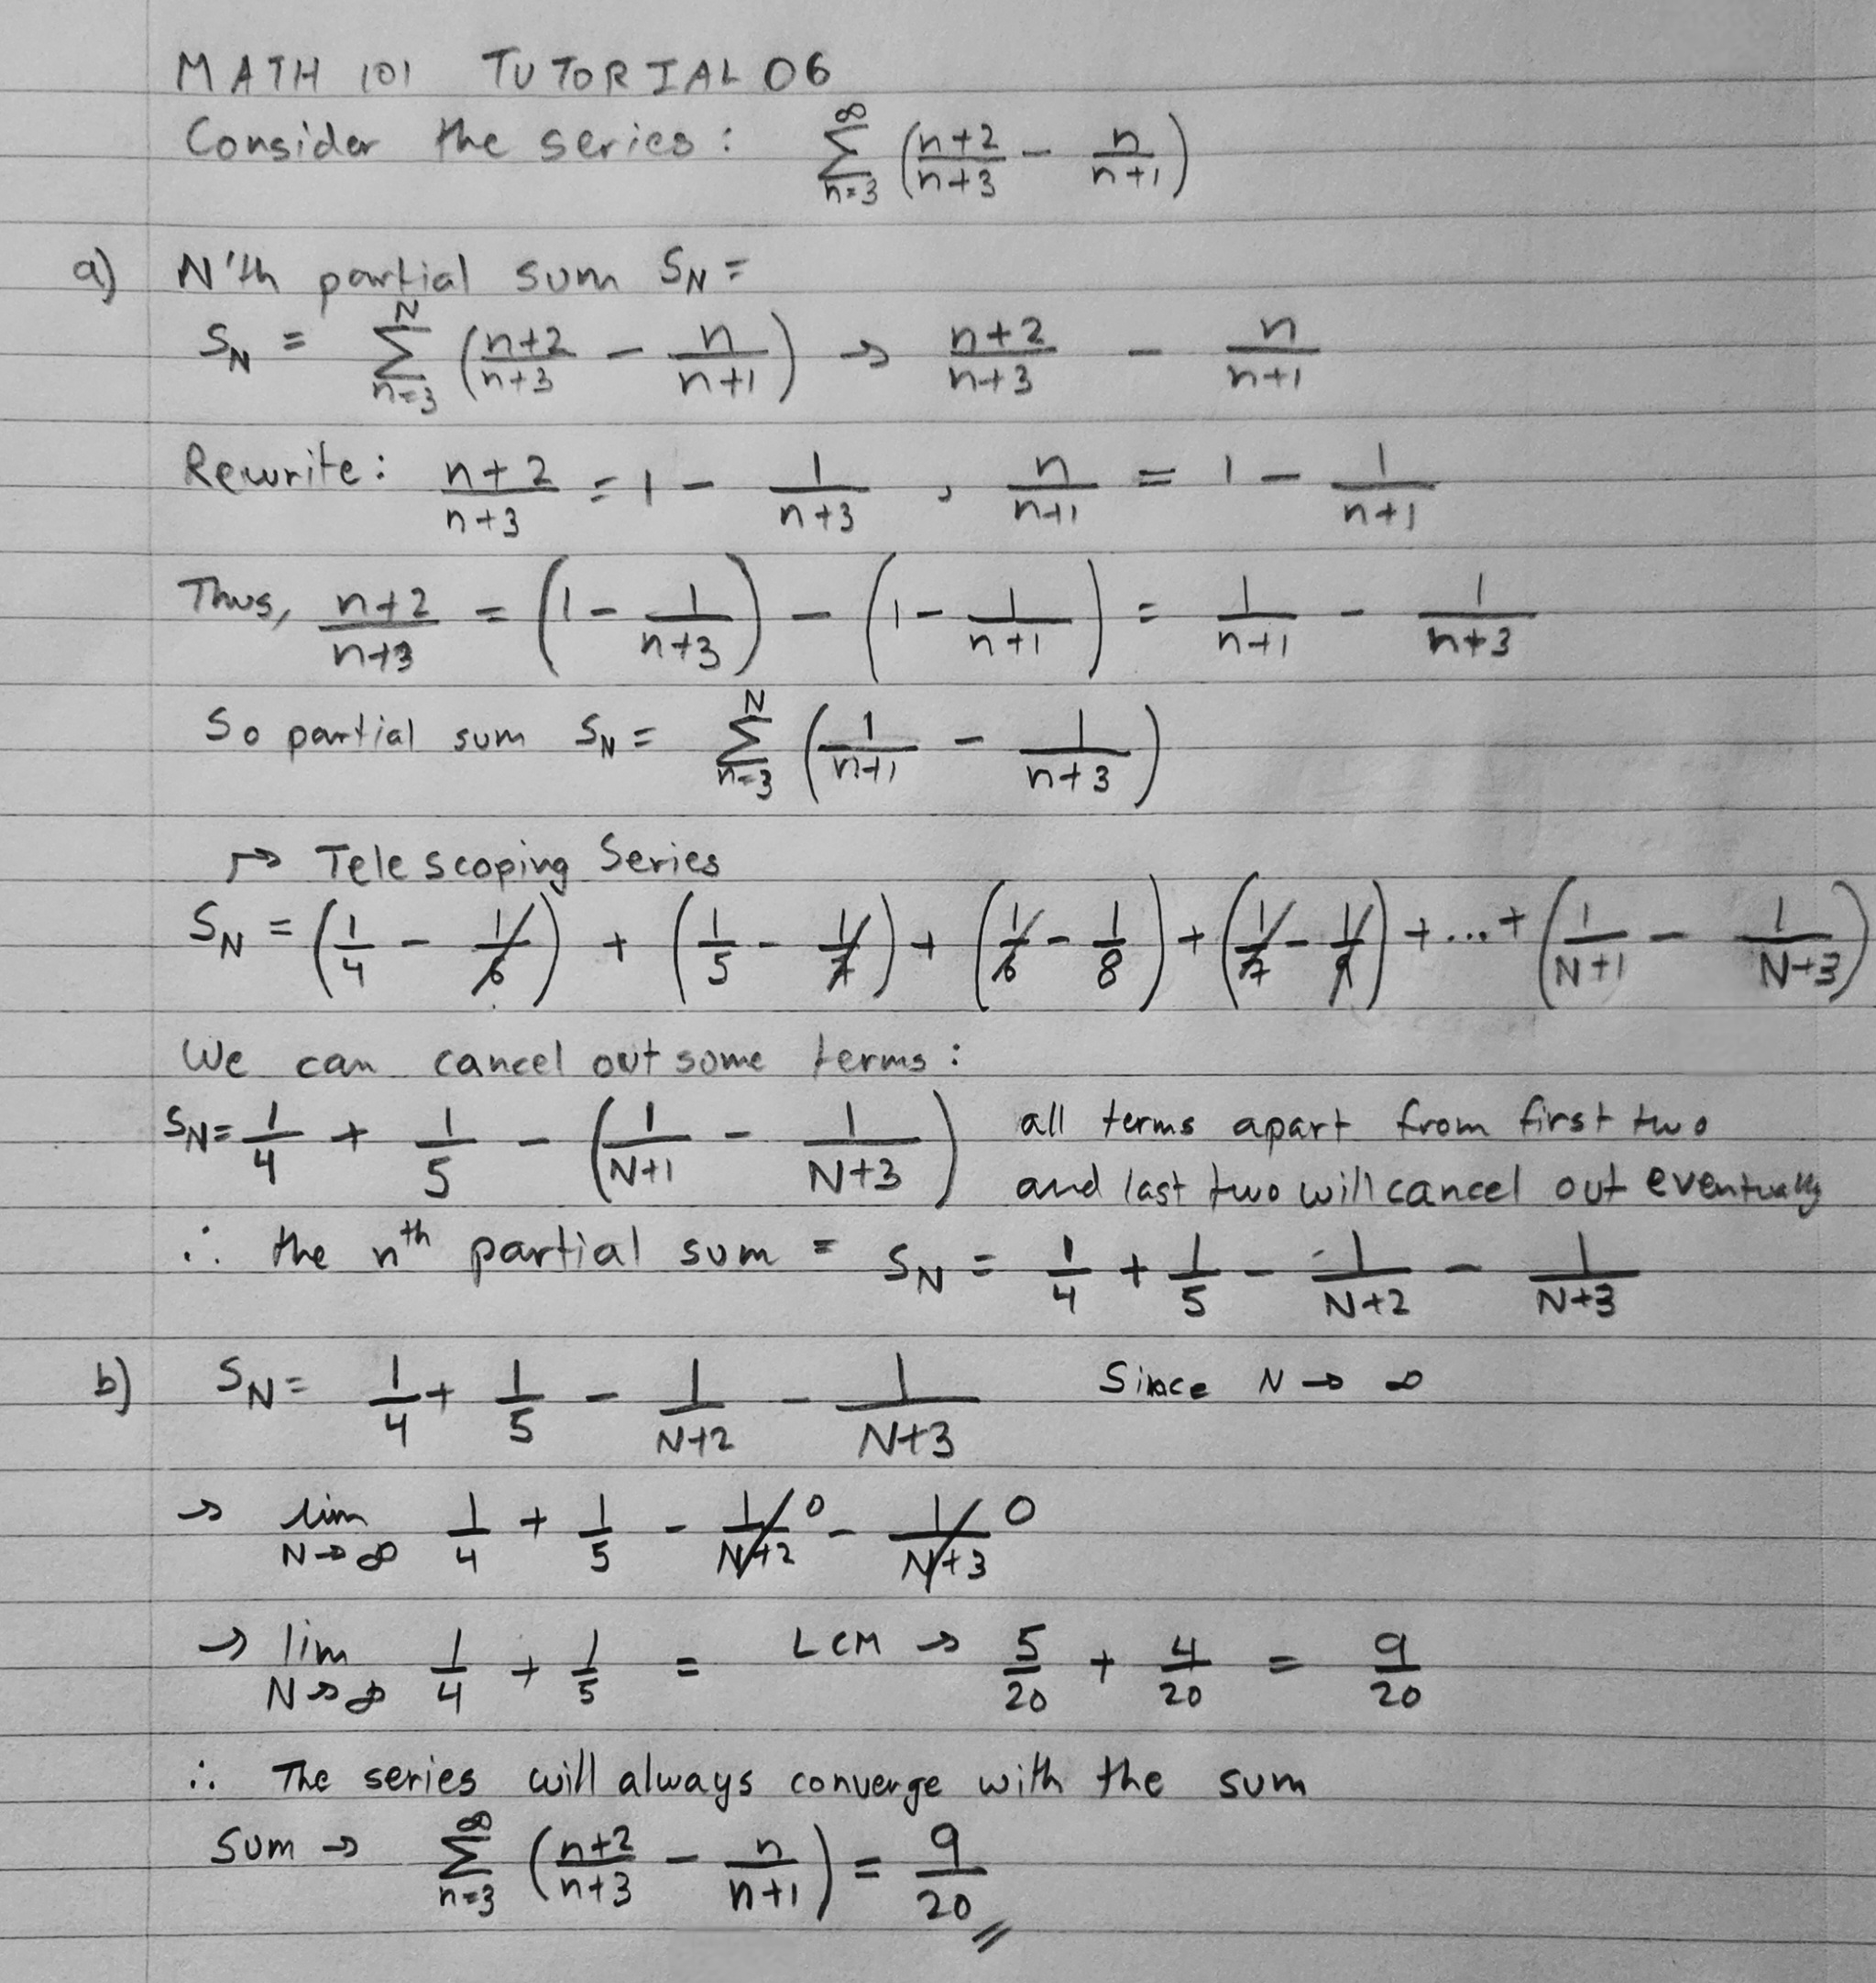 MATH 101 TUTORIAL 06
Consider the series: ∑_{n=3}^{∞} ((n+2)/(n+3) - n/(n+1))
a) N'th partial sum S_N =
S_N = ∑_{n=3}^{N} ((n+2)/(n+3) - n/(n+1)) → (n+2)/(n+3) - n/(n+1)
Rewrite: (n+2)/(n+3) = 1 - 1/(n+3) , n/(n+1) = 1 - 1/(n+1)
Thus, (n+2)/(n+3) = (1 - 1/(n+3)) - (1 - 1/(n+1)) = 1/(n+1) - 1/(n+3)
So partial sum S_N = ∑_{n=3}^{N} (1/(n+1) - 1/(n+3))
↦ Telescoping Series
S_N = (1/4 - 1/6) + (1/5 - 1/7) + (1/6 - 1/8) + (1/7 - 1/9) + ... + (1/(N+1) - 1/(N+3))
We can cancel out some terms:
S_N = 1/4 + 1/5 - (1/(N+1) - 1/(N+3)) all terms apart from first two
and last two will cancel out eventually
∴ the n^th partial sum = S_N = 1/4 + 1/5 - 1/(N+2) - 1/(N+3)
b) S_N = 1/4 + 1/5 - 1/(N+2) - 1/(N+3) Since N → ∞
→ lim_{N→∞} 1/4 + 1/5 - 1/(N+2) 0 - 1/(N+3) 0
→ lim_{N→∞} 1/4 + 1/5 = LCM → 5/20 + 4/20 = 9/20
∴ The series will always converge with the sum
Sum → ∑_{n=3}^{∞} ((n+2)/(n+3) - n/(n+1)) = 9/20